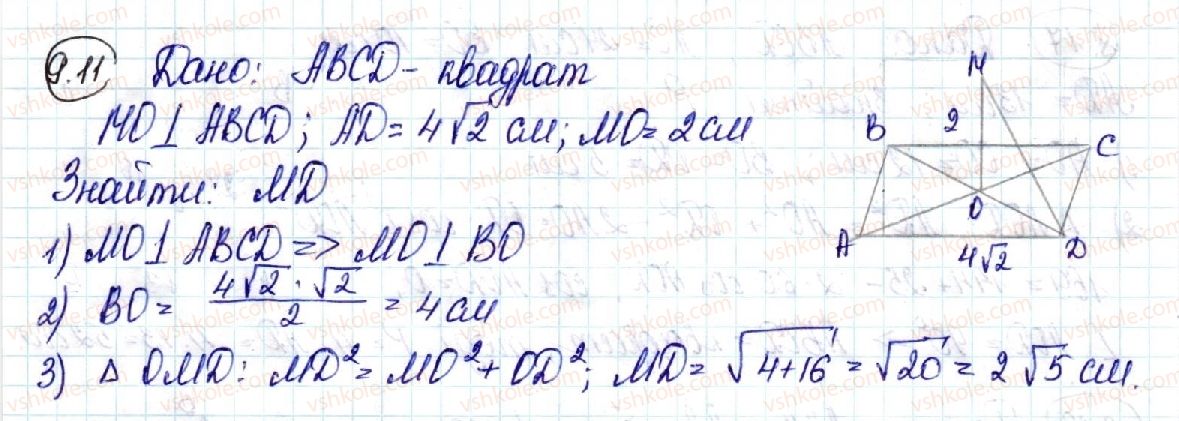 9.11 Дано: ABCD - квадрат
MO ⊥ ABCD; AD = 4√2 см; MO = 2 см
Знайти: MD
1) MO ⊥ ABCD => MO ⊥ BO
2) BO = (4√2 · √2)/2 = 4 см
3) Δ OMD: MD² = MO² + OD²; MD = √(4+16) = √20 = 2√5 см.
M
B 2 C
O
A 4√2 D
vshkole.com